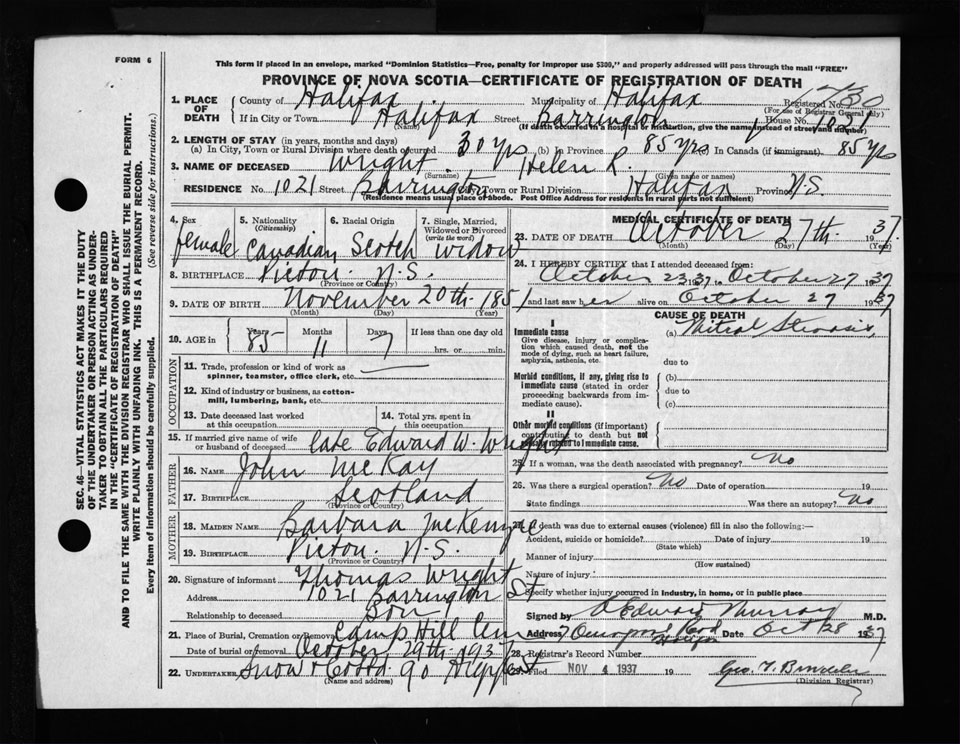 FORM 6
This form if placed in an envelope, marked "Dominion Statistics—Free, penalty for improper use $300," and properly addressed will pass through the mail "FREE"
PROVINCE OF NOVA SCOTIA—CERTIFICATE OF REGISTRATION OF DEATH
1. PLACE OF DEATH
County of Halifax Municipality of Halifax Registered No. 430
(For use of Registrar General only)
If in City or Town Halifax Street Barrington House No. 1021
(Name) (If death occurred in a hospital or institution, give the name instead of street and number)
2. LENGTH OF STAY (in years, months and days)
(a) In City, Town or Rural Division where death occurred 30 yrs (b) In Province 85 yrs (c) In Canada (if immigrant) 85 yrs
3. NAME OF DECEASED Wright Helen R.
(Surname) (Given name or names)
RESIDENCE No. 1021 Street Barrington City, Town or Rural Division Halifax Province N.S.
(Residence means usual place of abode. Post Office Address for residents in rural parts not sufficient)
4. Sex female
5. Nationality (Citizenship) Canadian
6. Racial Origin Scotch
7. Single, Married, Widowed or Divorced (write the word) Widow
8. BIRTHPLACE Pictou N.S.
(Province or Country)
9. DATE OF BIRTH November 20th 1851
(Month) (Day) (Year)
10. AGE in Years 85 Months 11 Days 7 If less than one day old
hrs. or min.
OCCUPATION
11. Trade, profession or kind of work as spinner, teamster, office clerk, etc.
12. Kind of industry or business, as cotton-mill, lumbering, bank, etc.
13. Date deceased last worked at this occupation
14. Total yrs. spent in this occupation
15. If married give name of wife or husband of deceased late Edward W. Wright
FATHER
16. NAME John McKay
17. BIRTHPLACE Scotland
(Province or Country)
MOTHER
18. MAIDEN NAME Barbara McKenzie
19. BIRTHPLACE Pictou N.S.
(Province or Country)
20. Signature of informant Thomas Wright
Address 1021 Barrington St
Relationship to deceased Son
21. Place of Burial, Cremation or Removal Camp Hill Cem
Date of burial or removal October 29th 1937
22. UNDERTAKER Snow & Co 90
(Name and address)
MEDICAL CERTIFICATE OF DEATH
23. DATE OF DEATH October 27th 1937.
(Month) (Day) (Year)
24. I HEREBY CERTIFY that I attended deceased from:
October 23 1937 to October 27 1937
and last saw her alive on October 27 1937
CAUSE OF DEATH
I
Immediate cause (a) Mitral Stenosis
Give disease, injury or complication which caused death, not the mode of dying, such as heart failure, asphyxia, asthenia, etc.
due to
Morbid conditions, if any, giving rise to immediate cause (stated in order proceeding backwards from immediate cause).
(b)
due to
(c)
II
Other morbid conditions (if important) contributing to death but not causally related to immediate cause.
25. If a woman, was the death associated with pregnancy? No
26. Was there a surgical operation? No Date of operation 19
State findings Was there an autopsy? No
27. If death was due to external causes (violence) fill in also the following:—
Accident, suicide or homicide? Date of injury 19
(State which)
Manner of injury
(How sustained)
Nature of injury
Specify whether injury occurred in Industry, in home, or in public place
Signed by D Edward Murray M.D.
Address Quinpool Road Halifax Date Oct 28 1937
28. Registrar's Record Number
29. Filed NOV 4 1937 19
(Division Registrar)
SEC. 46—VITAL STATISTICS ACT MAKES IT THE DUTY
OF THE UNDERTAKER OR PERSON ACTING AS UNDER-
TAKER TO OBTAIN ALL THE PARTICULARS REQUIRED
IN THE "CERTIFICATE OF REGISTRATION OF DEATH"
AND TO FILE THE SAME WITH THE DIVISION REGISTRAR WHO SHALL ISSUE THE BURIAL PERMIT.
WRITE PLAINLY WITH UNFADING INK. THIS IS A PERMANENT RECORD.
Every item of information should be carefully supplied. (See reverse side for instructions.)